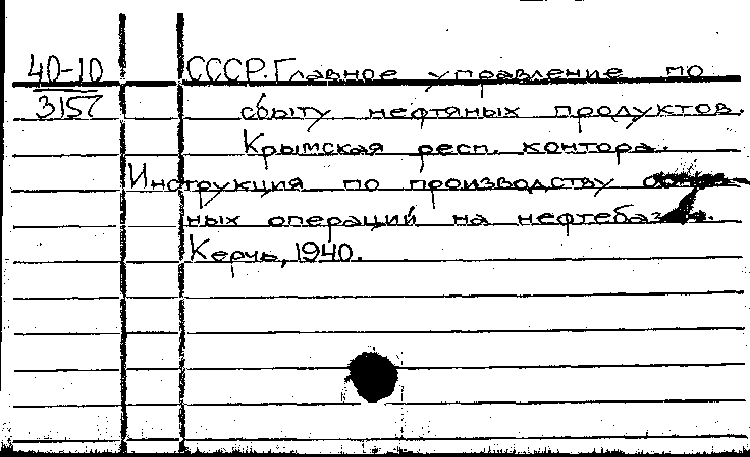 40-10 СССР. Главное управление по
3157 сбыту нефтяных продуктов.
Крымская респ. контора.
Инструкция по производству
ных операций на нефтебазах.
Керчь, 1940.